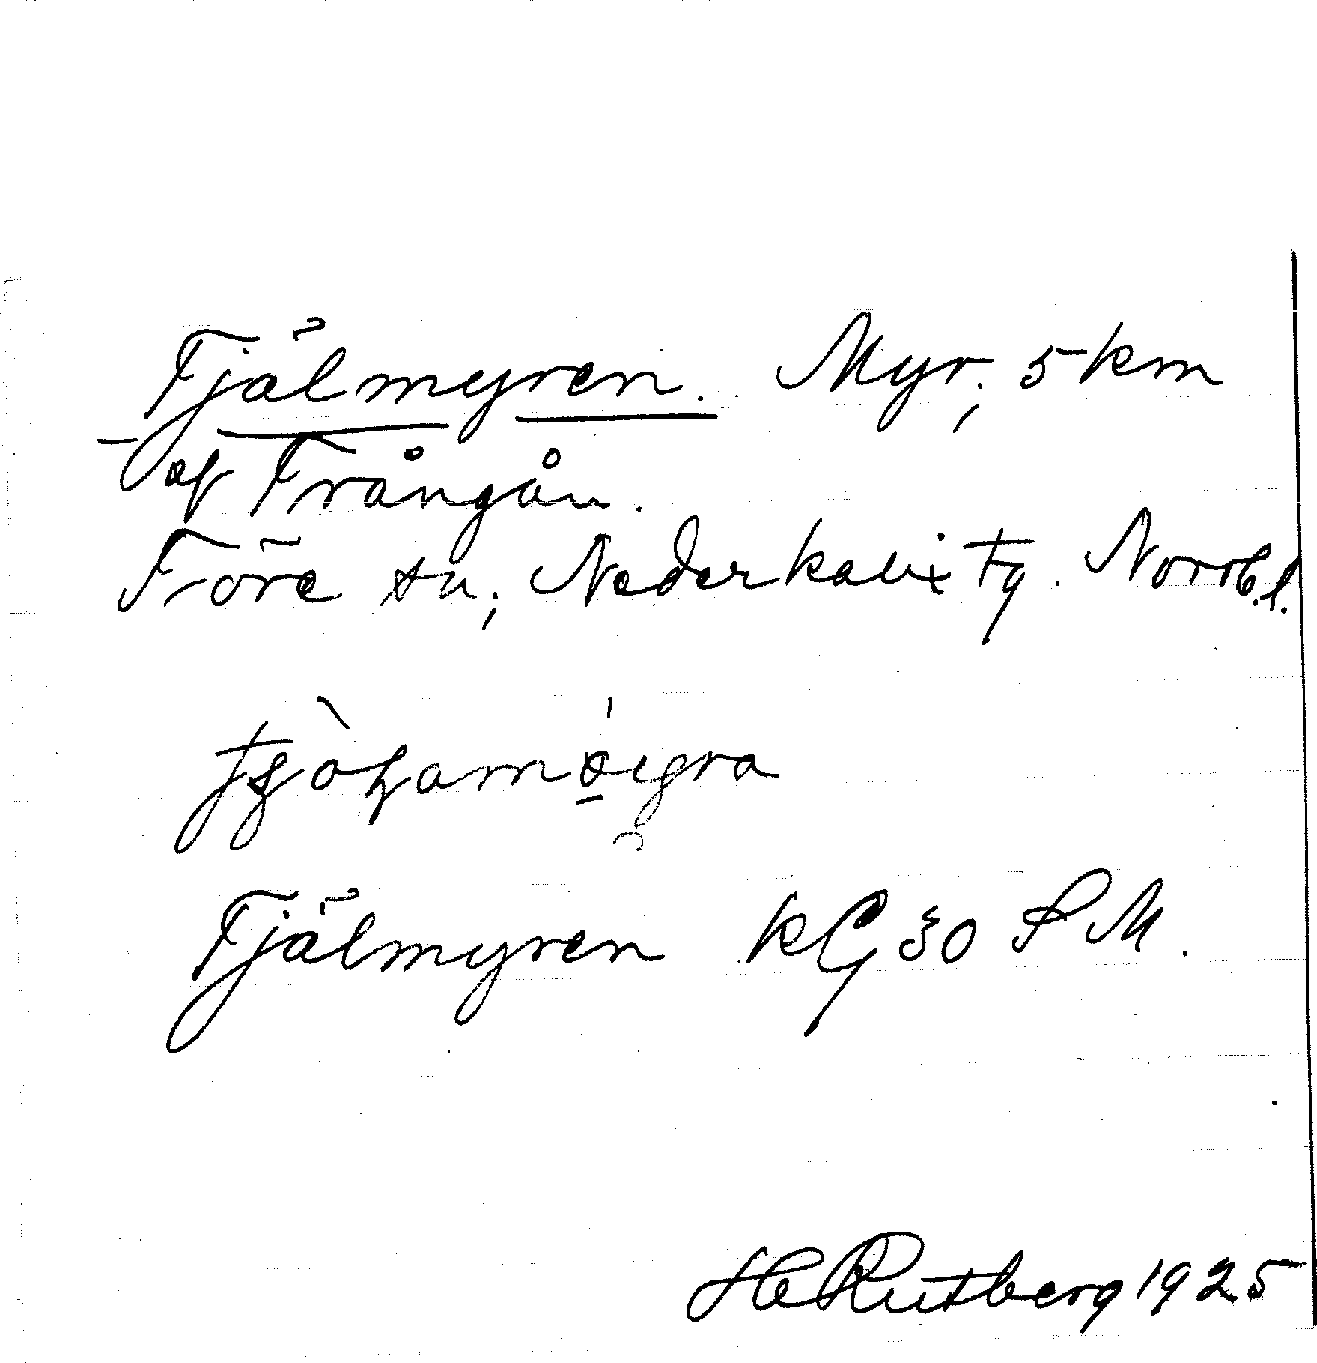 Tjälmyren. Myr, 5 km
af Trångån.
Töre sn, Nederkalix tg. Norrb.l.
Tjälmyren kG 30 S M.
H Rutberg 1925